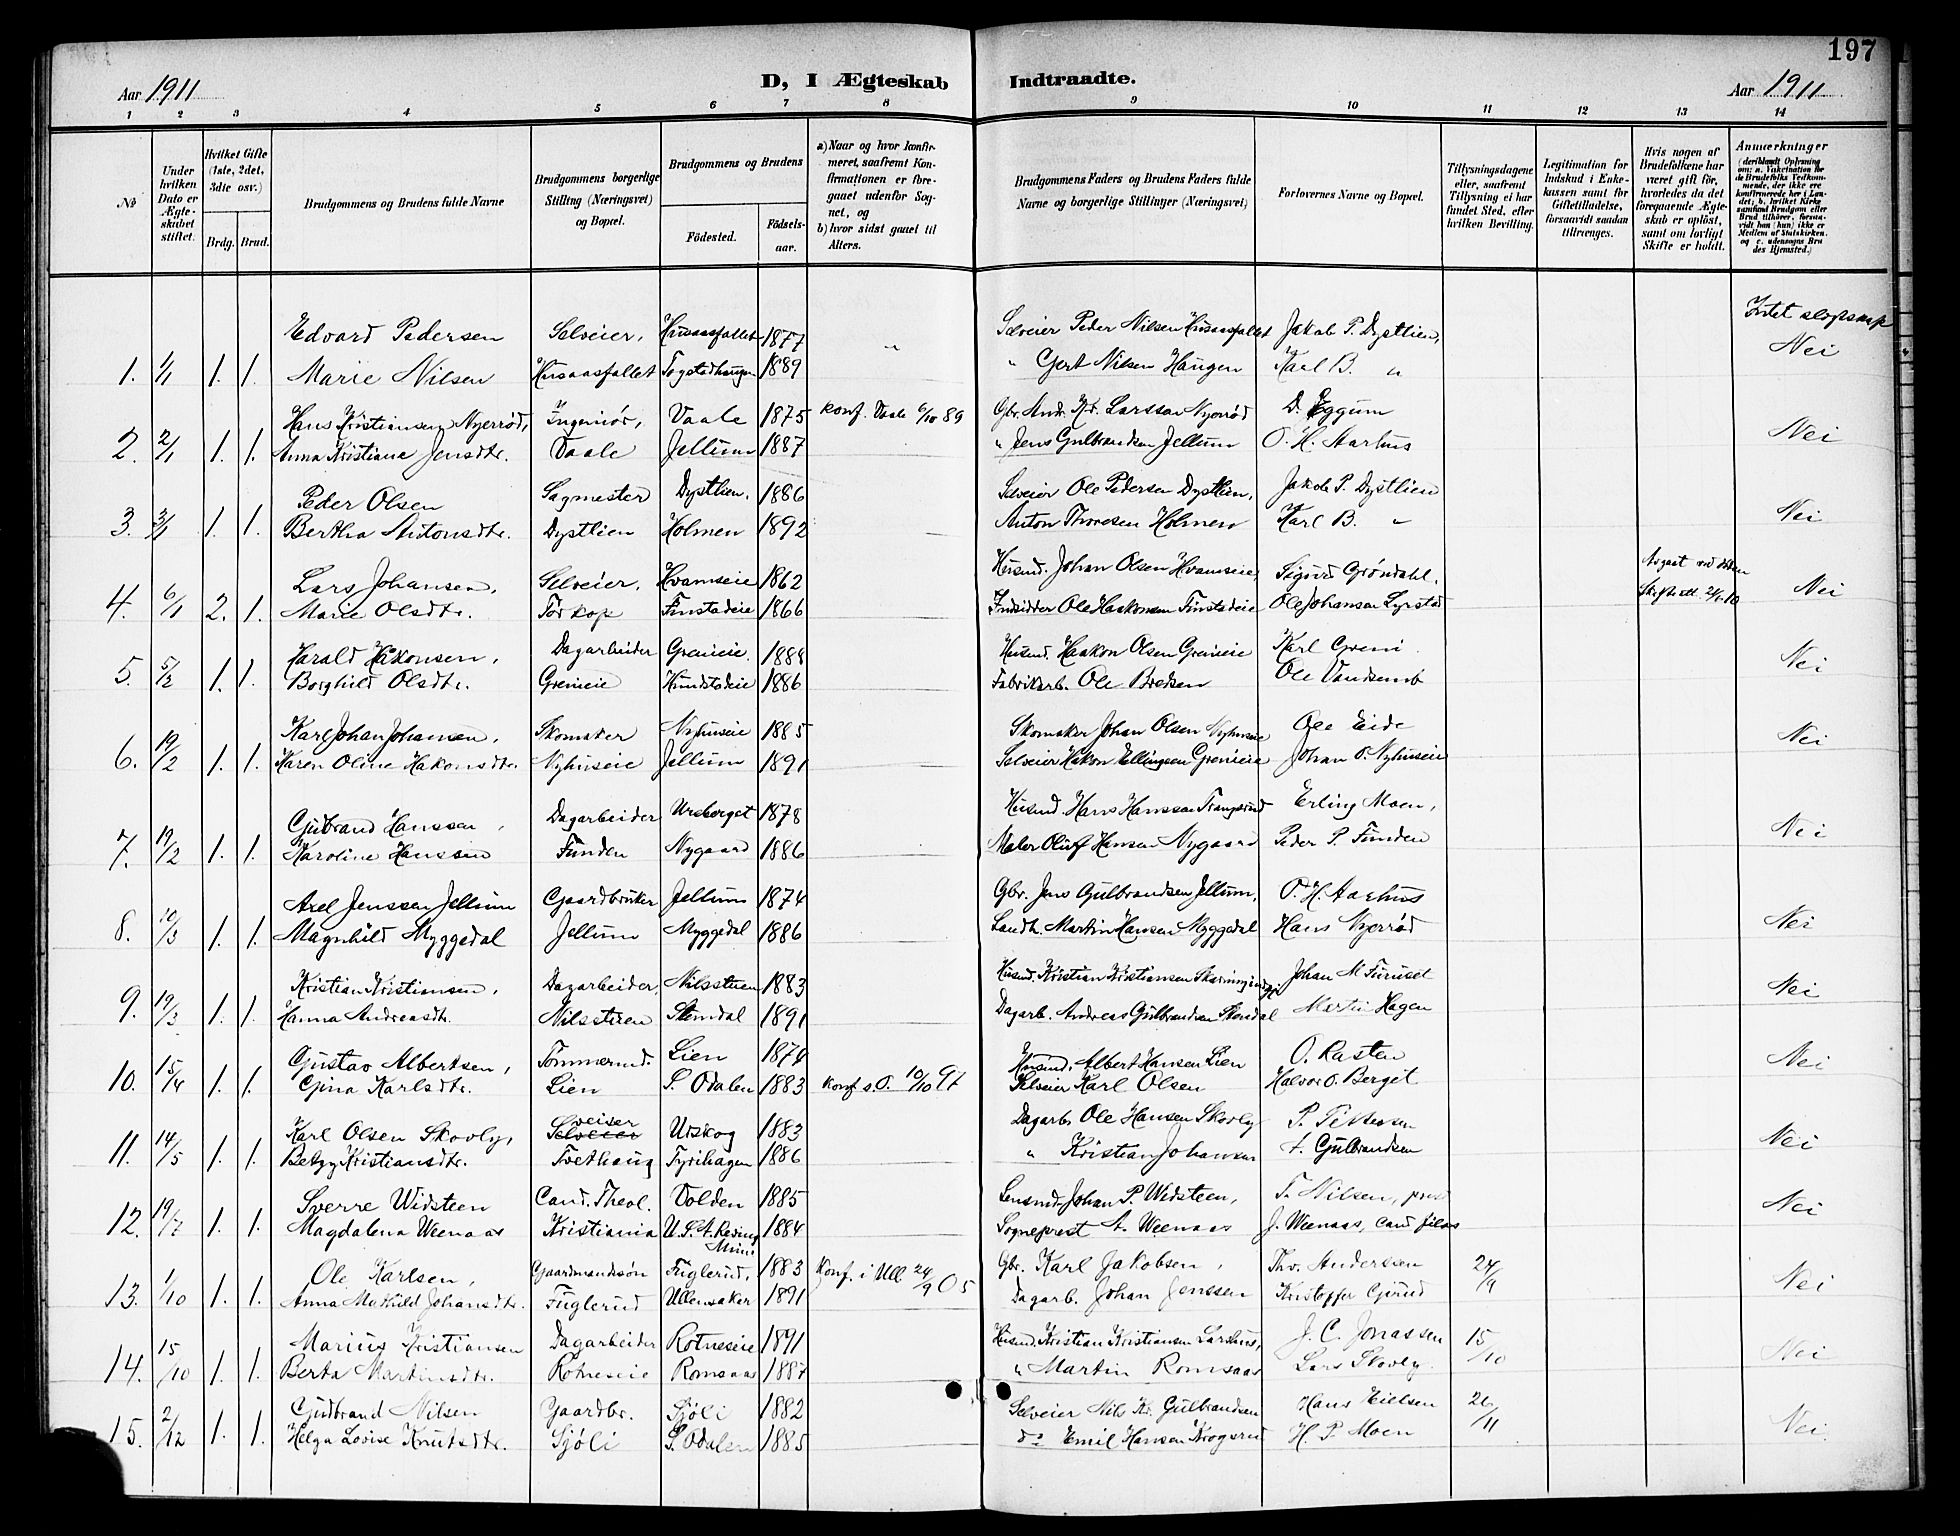 197
Aar 1911
D, I Ægteskab Indtraadte.
Aar 1911
1 2 3 4 5 6 7 8 9 10 11 12 13 14
No
Under hvilken Dato er Ægteskabet stiftet.
Hvilket Gifte (1ste, 2det, 3die osv.)
Brdg. Brud.
Brudgommens og Brudens fulde Navne
Brudgommens borgerlige Stilling (Næringsvei) og Bopæl.
Brudgommens og Brudens
Fødested.
Fødselsaar.
a) Naar og hvor konfirmeret, saafremt Konfirmationen er foregaaet udenfor Sognet, og
b) hvor sidst gaaet til Alters.
Brudgommens Faders og Brudens Faders fulde Navne og borgerlige Stillinger (Næringsvei)
Forlovernes Navne og Bopæl.
Tillysningsdagene eller, saafremt Tillysning ei har fundet Sted, efter hvilken Bevilling.
Legitimation for Indskud i Enkekassen samt for Giftetilladelse, forsaavidt saadan tiltrænges.
Hvis nogen af Brudefolkene har været gift før, hvorledes da det foregaaende Ægteskab er opløst, samt om lovligt Skifte er holdt.
Anmærkninger
(deriblandt Oplysning om: a. Vakcination for de Brudefolks Vedkommende, der ikke ere konfirmerede her i Landet; b. hvilket Kirkesamfund Brudgom eller Brud tilhører, forsaavidt han (hun) ikke er Medlem af Statskirken, og c. udensogns Brudes Hjemsted.)
Intet slegtskap
Edvard Pedersen Selveier, Husaasfallet 1877 Selveier Peder Nilsen Husaasfallet Jakob P. Dystlien,
1. 1/1 1. 1. Marie Nilsen Husaasfallet Fogstadhaugen 1889 " " Gert Nilsen Haugen Karl B. " Nei
Hans Kristiansen Nyerrød, Ingeniør, Vaale 1875 Konf. Vaale 6/10 89 Gbr. And. Kr. Larssen Nyerrød D. Eggum
2. 2/1 1. 1. Anna Kristiane Jensdtr. Vaale Jellum 1887 " Jens Gulbrandsen Jellum O. H. Aarhus Nei
Peder Olsen Sagmester Dystlien, 1886 Selveier Ole Pedersen Dystlien, Jakob P. Dystlien
3. 3/1 1. 1. Bertha Antonsdtr. Dystlien Holmen 1892 Anton Thoresen Holmen Karl B. " Nei
Lars Johansen, Selveier, Hvamseie 1862 Husmd. Johan Olsen Hvamseie, Sigurd Grøndahl,
4. 6/1 2. 1. Marie Olsdtr. Torkop Finstadeie 1866 Indsidder Ole Haakonsen Finstadeie Ole Johansen Lyrstad Nei
Harald Hakonsen, Dagarbeider Grenieie 1888 Husmd. Haakon Olsen Grenieie Karl Greni
5. 5/2 1. 1. Borghild Olsdtr. Grenieie Hundstadeie 1886 Fabrikarb. Ole Bredsen Ole Vandsemb Nei
Karl Johan Johansen, Skomaker Nyhuseie 1885 Skomaker Johan Olsen Nyhuseie Ole Eide
6. 19/2 1. 1. Karen Oline Hakonsdtr. Nyhuseie Jellum 1891 Selveier Hakon Ellingsen Grenieie Johan O. Nyhuseie Nei
Gulbrand Hanssen, Dagarbeider Ursborget 1878 Husmd. Hans Hanssen Trangsrud Erling Moen,
7. 19/2 1. 1. Karoline Hanssen Funden Nygaard 1886 Maler Oluf Hansen Nygaard Peder P. Funden Nei
Axel Jenssen Jellum Gaardbruker Jellum 1874 Gbr. Jens Gulbrandsen Jellum, O. H. Aarhus
8. 10/3 1. 1. Magnhild Myggedal Jellum Myggedal 1886 Landh. Martin Hansen Myggedal Hans Nyerrød Nei
Kristian Kristiansen, Dagarbeider, Nilsstuen 1883 Husmd. Kristian Kristiansen Johan M Furuset
9. 19/3 1. 1. Hanna Andreasdtr. Nilsstuen Stemdal 1891 Dagarb. Andreas Gulbrandsen Stemdal Martin Hagen Nei
Gustav Albertsen, Tømmermd. Lien 1874 Husmd. Albert Hansen Lien O. Rasten
10. 15/4 1. 1. Gina Karlsdtr. Lien S. Odalen 1883 Konf. s. O. 10/10 97 Selveier Karl Olsen Halvor O. Berget Nei
Karl Olsen Skovly, Sveiser Selveier Urskog 1883 Dagarb. Ole Hansen Skovly P. Pettersen
11. 14/5 1. 1. Betzy Kristiansdtr. Tvethaug Fyrihagen 1886 " Kristian Johansen Gulbrandsen Nei
Sverre Widsteen Cand. Theol. Volden 1885 Lensmd. Johan P. Widsteen, T. Nilsen, prest
12. 19/7 1. 1. Magdalena Weenaas Kristiania U. S. A. Resing Minn 1884 Sogneprest A. Weenaas J. Weenaas, cand filos Nei
Ole Karlsen, Gaardmandssøn Fuglerud, 1883 Konf. i Ull 24/9 05 Gbr. Karl Jakobsen, Thv. Andersen 24/9
13. 1/10 1. 1. Anna Mathild Johansdtr. Fuglerud Ullensaker 1891 Dagarb. Johan Jenssen Kristoffer Gjrud Nei
Marius Kristiansen Dagarbeider Rotneseie 1891 Husmd. Kristian Kristiansen Larshus, J. C. Jonassen 15/10
14. 15/10 1. 1. Berta Martinsdtr. Rotneseie Romsaas 1887 " Martin Romsaas Lars Skovly. Nei
Gudbrand Nilsen Gaardbr. Sjöli 1882 Selveier Nils Kr. Gulbrandsen Hans Nielsen 26/11
15. 2/12 1. 1. Helga Lovise Knutsdtr. Sjöli S. Odalen 1885 do Emil Hansen Krogsrud H. P. Moen Nei